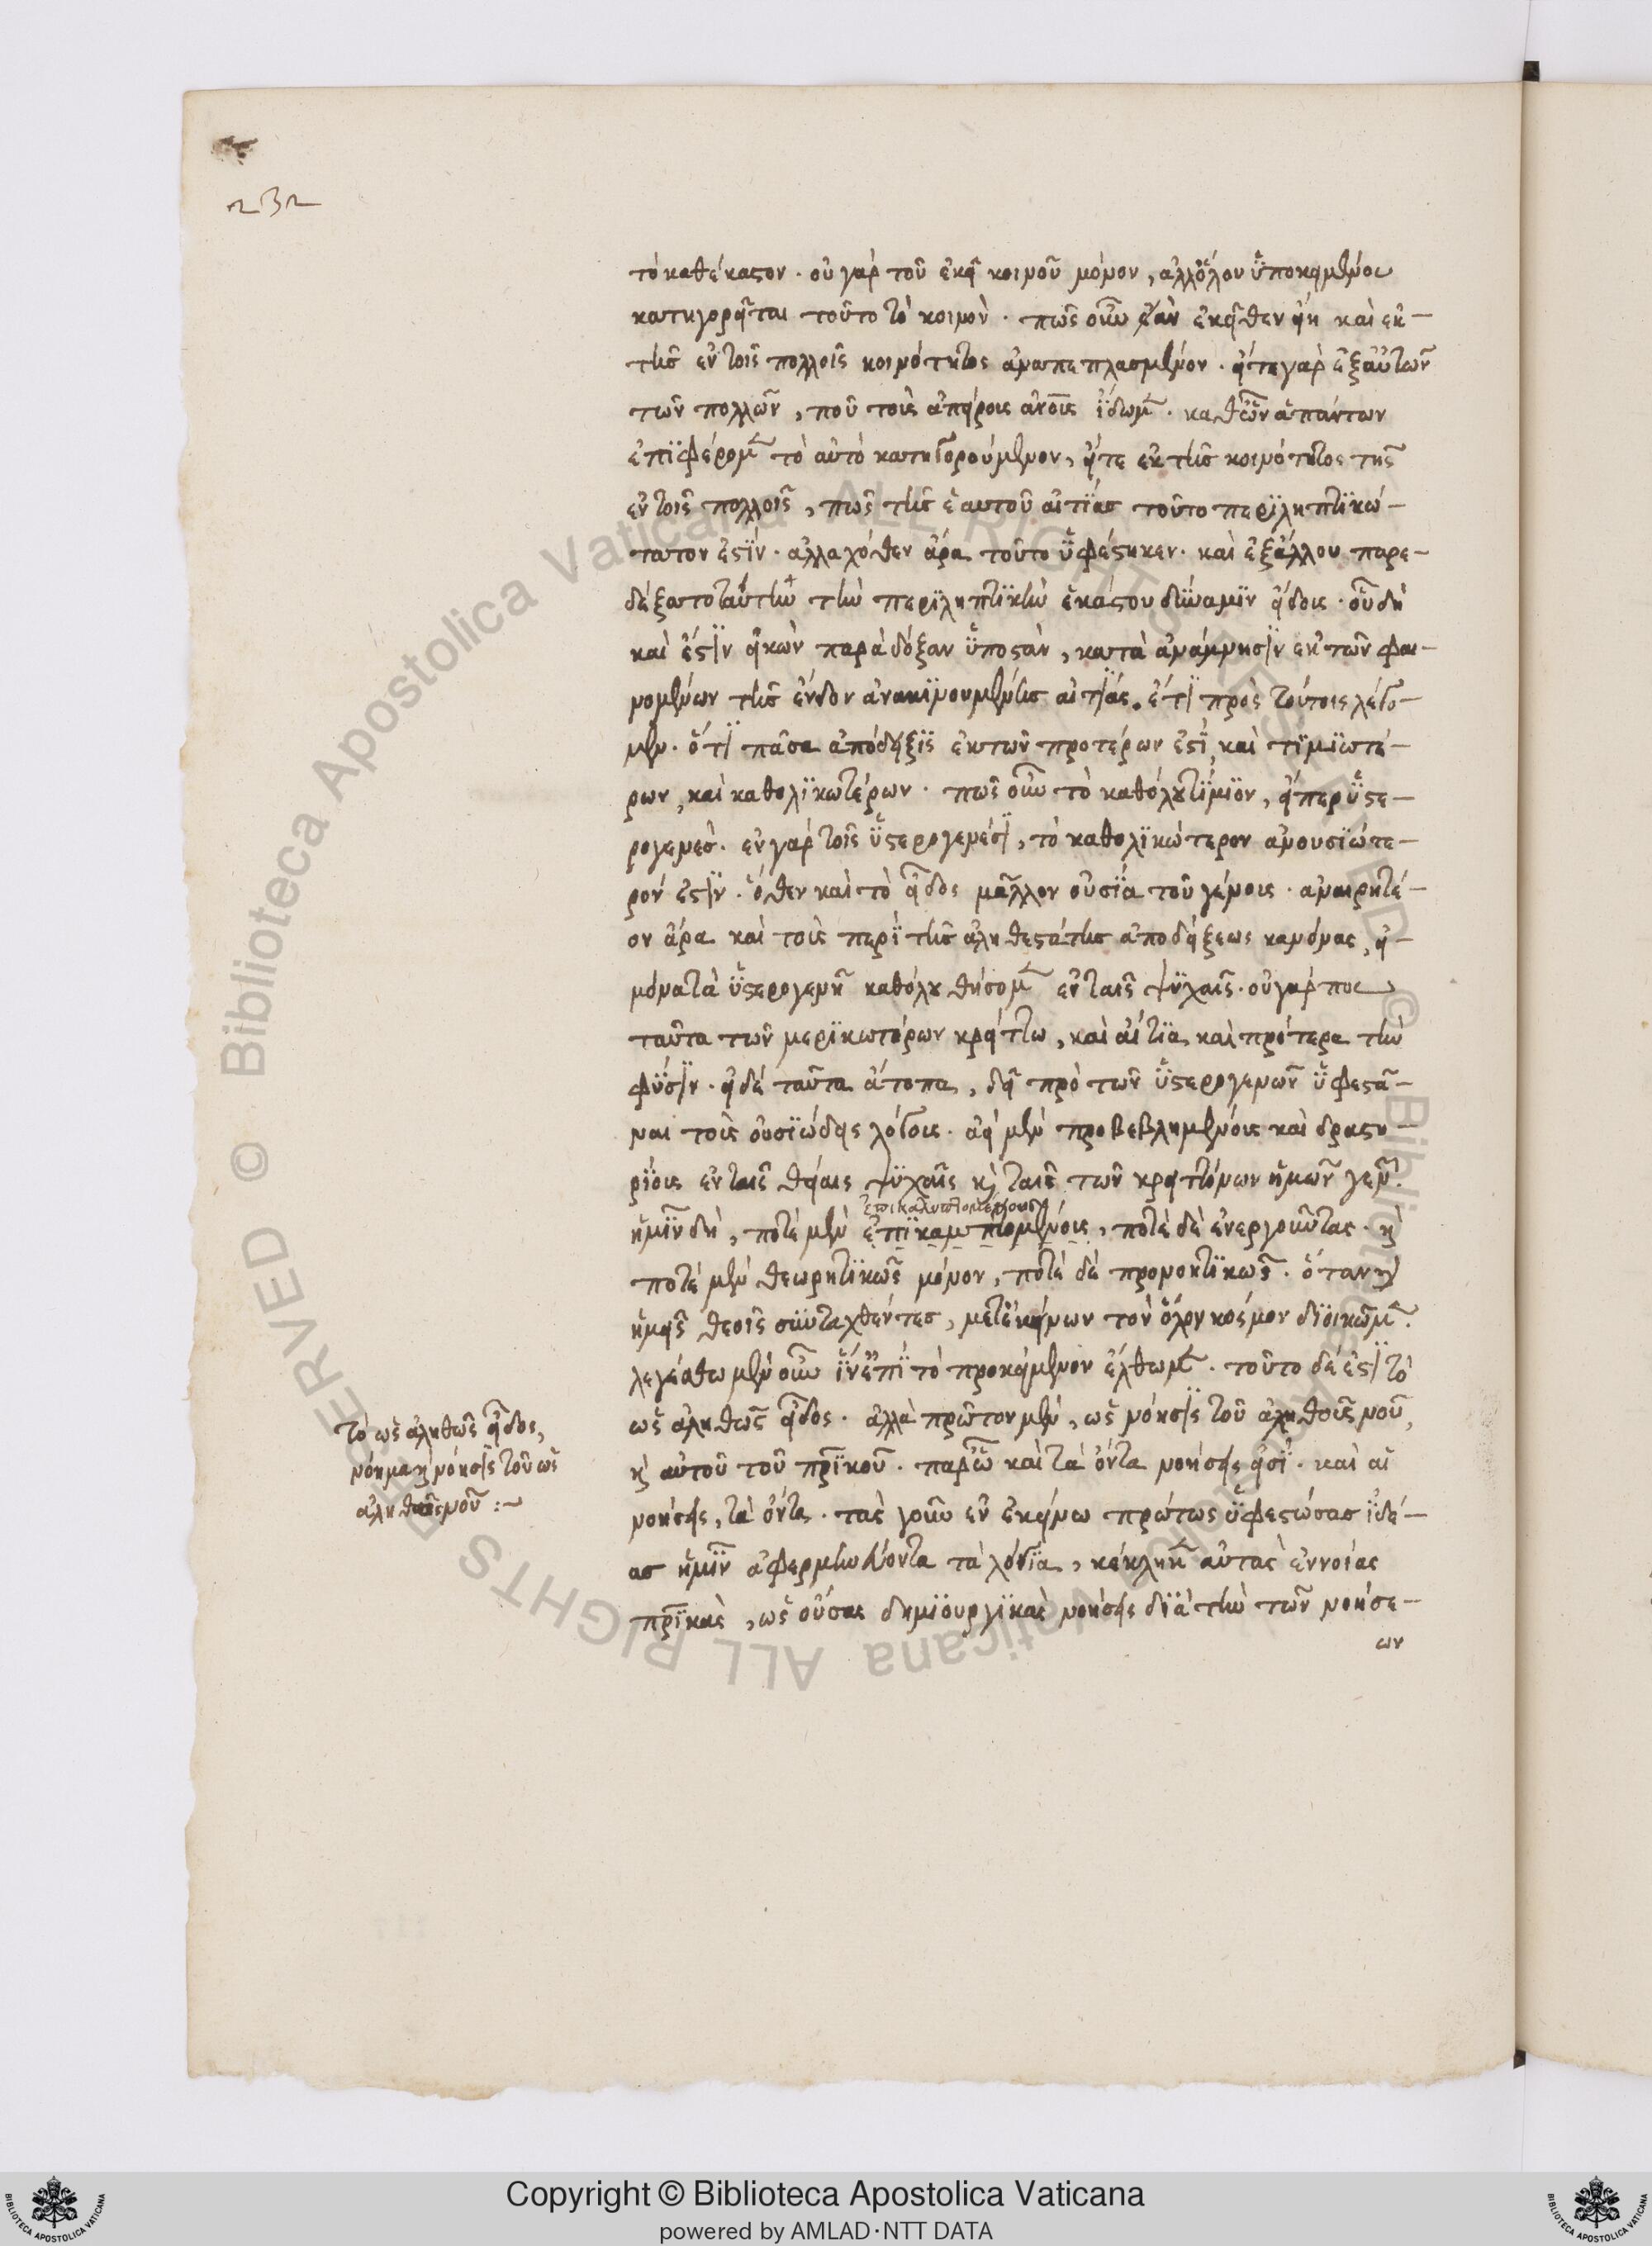 232
τὸ καθέκαστον. οὐ γὰρ τοῦ ἐκεῖ κοινοῦ μόνον, ἀλλ' ὅλου ὑποκειμένου
κατηγορεῖται τοῦτο τὸ κοινὸν. πῶς οὖν ἐὰν ἐκεῖθεν εἴη καὶ ἐκ
τῆς ἐν τοῖς πολλοῖς κοινότητος ἀναπεπλασμένον. εἴτε γὰρ ἐξ αὐτῶν
τῶν πολλῶν, ποῦ τοὺς ἀπείρους ἀνους ἴδωμεν. καθ' ὧν ἁπάντων
ἐπιφέρομεν τὸ αὐτὸ κατηγορούμενον, εἴτε ἐκ τῆς κοινότητος τῆς
ἐν τοῖς πολλοῖς, πῶς τῆς ἑαυτοῦ αἰτίας τοῦτο περιληπτικώ-
τατον ἐστίν. ἀλλαχόθεν ἄρα τοῦτο ὑφέστηκεν. καὶ ἐξ ἄλλου παρε-
δέξατο ταύτην τὴν περιληπτικὴν ἑκάστου δύναμιν εἴδους. οὗ δὴ
καὶ ἔστιν εἰκὼν παρὰ δόξαν ὑποστὰν, κατὰ ἀνάμνησιν ἐκ τῶν φαι-
νομένων τῆς ἔνδον ἀνακινουμένης αἰτίας. ἔτι πρὸς τούτοις λέγο-
μεν. ὅτι πᾶσα ἀπόδειξις ἐκ τῶν προτέρων ἐστὶ, καὶ τιμιωτέ-
ρων, καὶ καθολικωτέρων. πῶς οὖν τὸ καθόλου τίμιον, εἴπερ ὑστε-
ρογενές. ἐν γὰρ τοῖς ὑστερογενέσι, τὸ καθολικώτερον ἀνουσιώτε-
ρόν ἐστιν. ὅθεν καὶ τὸ εἶδος μᾶλλον οὐσία τοῦ γένους. ἀναιρετέ-
ον ἄρα καὶ τοὺς περὶ τῆς ἀληθεστάτης ἀποδείξεως κανόνας, εἰ
μόνα τὰ ὑστερογενῆ καθόλου θήσομεν ἐν ταῖς ψυχαῖς. οὐ γάρ που
ταῦτα τῶν μερικωτέρων κρείττω, καὶ αἴτια, καὶ πρότερα τὴν
φύσιν. εἰ δὲ ταῦτα ἄτοπα, δεῖ πρὸ τῶν ὑστερογενῶν ὑφεστά-
ναι τοὺς οὐσιώδεις λόγους. ἀεὶ μὲν προβεβλημένους καὶ δραστη-
ρίους ἐν ταῖς θείαις ψυχαῖς καὶ ταῖς τῶν κρειττόνων ἡμῶν γενῶν.
ἐπικαλυπτομένους
ἡμῖν δὴ, ποτὲ μὲν ἐπικαμπτομένους, ποτὲ δὲ ἐνεργοῦντας. καὶ
ποτὲ μὲν θεωρητικῶς μόνον, ποτὲ δὲ προνοητικῶς. ὅταν καὶ
ἡμεῖς θεοῖς συνταχθέντες, μετ' ἐκείνων τὸν ὅλον κόσμον διοικῶμεν.
λεγέσθω μὲν οὖν ἵν' ἐπὶ τὸ προκείμενον ἔλθωμεν. τοῦτο δέ ἐστι τὸ
ὡς ἀληθῶς εἶδος. ἀλλὰ πρῶτον μὲν, ὡς νόησις τοῦ ἀληθοῦς νοῦ,
καὶ αὐτοῦ τοῦ πατρικοῦ. παρ' ᾧ καὶ τὰ ὄντα νοήσεις εἰσί. καὶ αἱ
νοήσεις, τὰ ὄντα. τὰς γοῦν ἐν ἐκείνῳ πρώτως ὑφεστώσας ἰδέ-
ας ἡμῖν ἀφερμηνεύοντα τὰ λόγια, κέκληκεν αὐτὰς ἐννοίας
πατρικὰς, ὡς οὔσας δημιουργικὰς νοήσεις διὰ τὴν τῶν νοήσε-
ων
τὸ ὡς ἀληθῶς εἶδος,
νόημα καὶ νόησις τοῦ ὡς
ἀληθῶς νοῦ :~
Copyright © Biblioteca Apostolica Vaticana
powered by AMLAD·NTT DATA
© Biblioteca Apostolica Vaticana ALL RIGHTS RESERVED
© Biblioteca Apostolica Vaticana ALL RIGHTS RESERVED